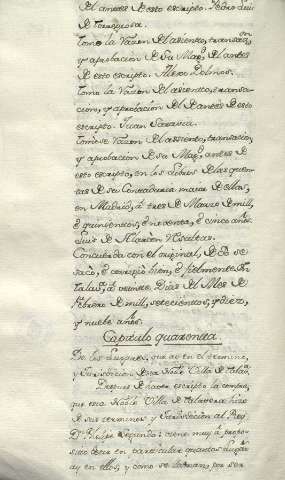 del antes de esto escripto. Pedro Luis
de Torregrosa.
Tome la Razon del asiento, transacon,
y aprobacion de su Magd. del antes
de esto escripto. Alexo Dolmos.
Tome la Razon del asiento, transa-
cion, y aprobacion del antes de esto
escripto. Juan Saravia.
Tomose Razon del asiento, transacion,
y aprobacion de su Magd. antes de
esto escripto, en los Libros de las quen-
tas de su Contaduria maior de ellas,
en Madrid, á tres de Marzo de mill,
é quinientos, é noventa, é cinco años.
Luis de Alarcon
Concuerda con el original, de do se
sacó, é corregio bien, é fielmente En
Talava. á veinte Dias del Mes de
Febrero de mill, setecientos, y diez,
y nuebe años.
Capitulo quarenta.
De los Lugares, que ay en el termino,
y Jurisdicion de esta Noble Villa de Talava.
Despues de haver escripto la compra,
que esta Noble Villa de Talavera hizo
de sus terminos y Jurisdicion al Rey
Dn. Phelipe Segundo: viene muy á propo-
sito decir en particular quantos Lugares
ay en ellos, y como se llaman, por ser